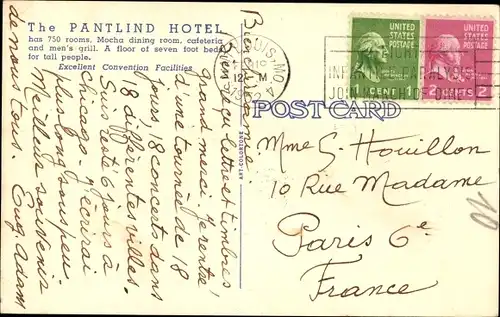 The PANTLIND HOTEL
has 750 rooms, Mocha dining room, cafeteria
and men's grill. A floor of seven foot beds
for tall people.
Excellent Convention Facilities
Bien chers amis
Bien reçu lettre et timbres,
grand merci. Je rentre
d'une tournée de 18
jours, 18 concerts dans
18 différentes villes.
Suis resté 6 jours à
Chicago. J'écrirai
plus long sous peu.
Meilleur souvenir
de nous tous. Eug. Adam
UNITED
STATES
POSTAGE
1 CENT 1
UNITED
STATES
POSTAGE
2 CENTS 2
LOUIS, MO.
12 - M
POST CARD
Mme G. Houillon
10 Rue Madame
Paris 6e
France
10